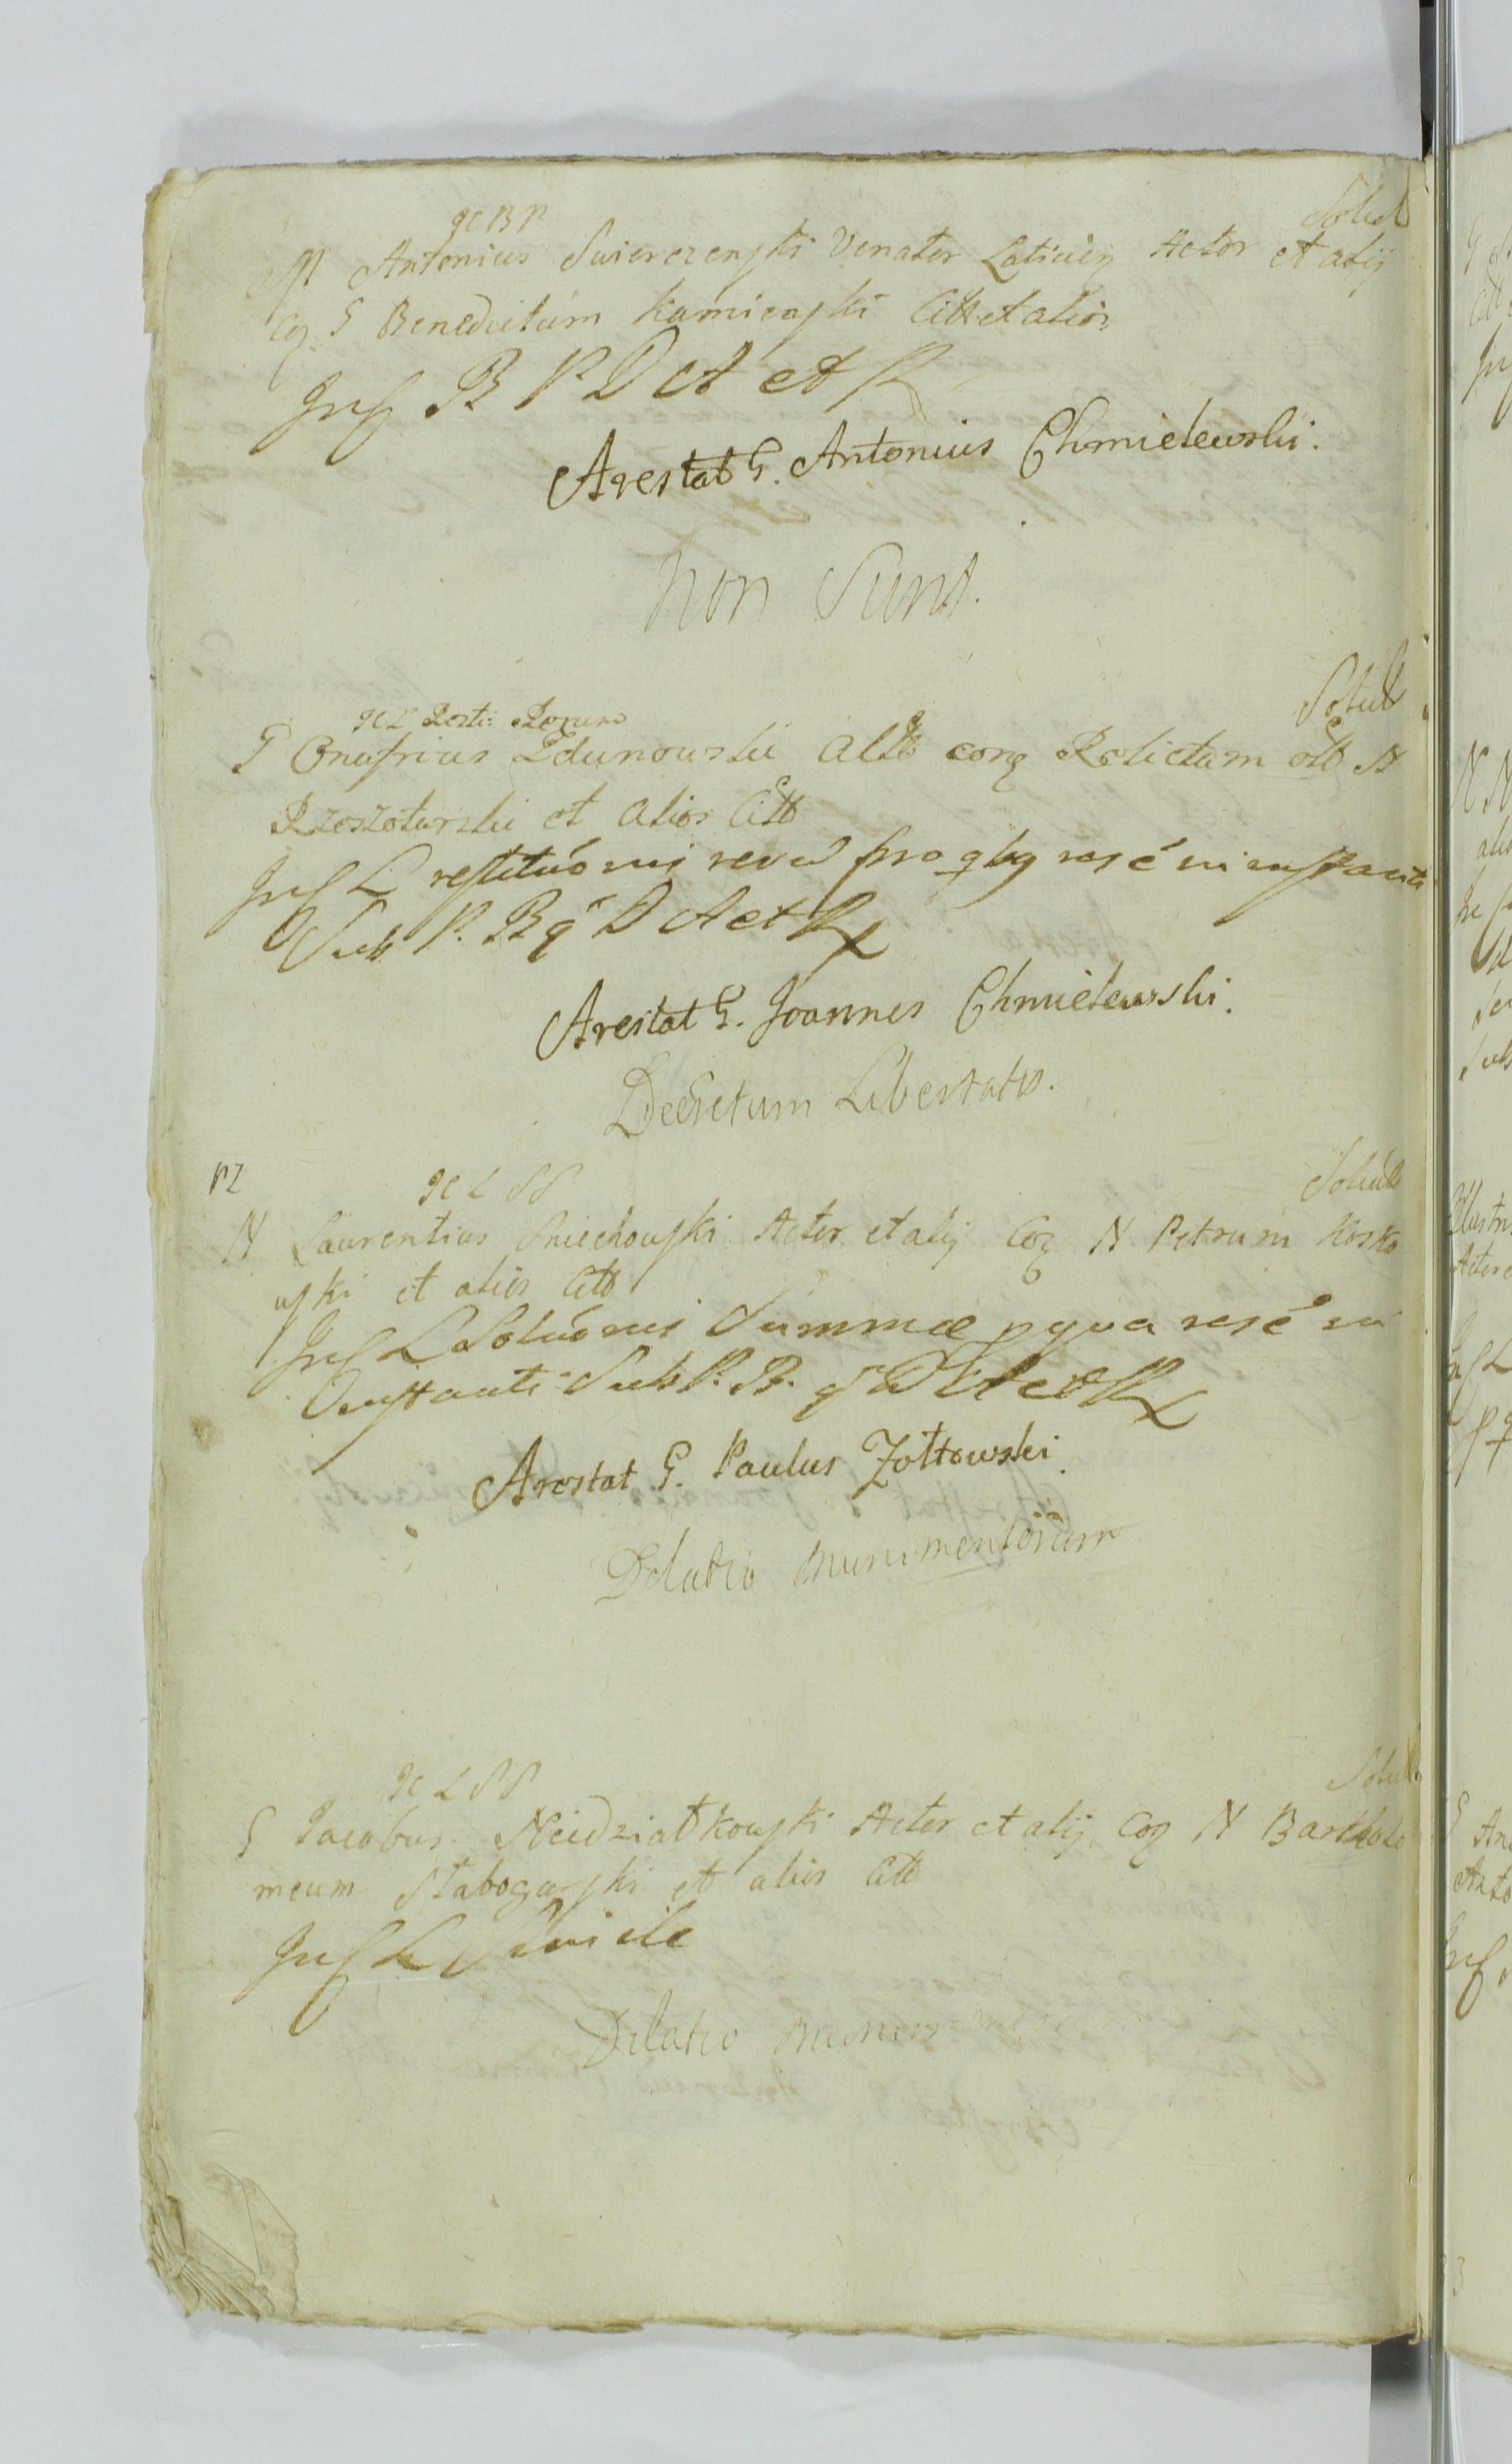 9C B P Solut
M Antonius Swierczenski Venator Laticien Actor et alij
Coq G Benedictum Kamienski Citt et alios
Inf B P D A et R
Arestat G. Antonius Chmielewski.
Non Sunt.
9C L Resti: Rerum Solut
G Onufrius Zdunowski Actt conq Relictam olt N
Rzeszotarski et alios Citt
Inf L restituónis
Sub P. B q D A et R
Arestat G. Joannes Chmielewski.
Decretum Libertatis.
PZ 9C L SS Solutt
N Laurentius Sniechowski Actor et alij Coq N Petrum Kosko
wski et alios Citt
Inf L Solutónis Summae p qua
Sub P. B. D A et R
Arestat G. Paulus Zołtowski.
Dilatio Munimentorum
9C L SS Solutt
G Jacobus Neidziałkowski Actor et alij Coq N Bartholo
meum Słabogorski et alios Citt
Inf L Simile
Dilatio